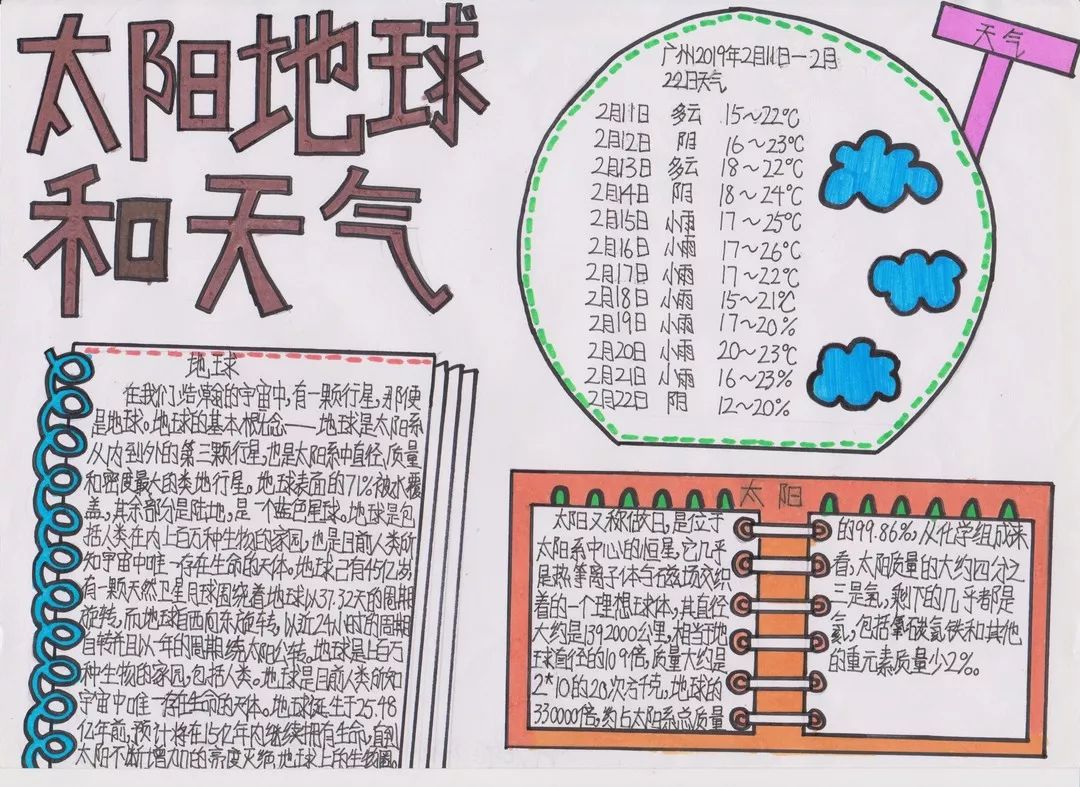 太阳地球
和天气
天气
广州2019年2月11日—2月
22日天气
2月11日 多云 15~22℃
2月12日 阴 16~23℃
2月13日 多云 18~22℃
2月14日 阴 18~24℃
2月15日 小雨 17~25℃
2月16日 小雨 17~26℃
2月17日 小雨 17~22℃
2月18日 小雨 15~21℃
2月19日 小雨 17~20%
2月20日 小雨 20~23℃
2月21日 小雨 16~23%
2月22日 阴 12~20%
地球
在我们浩瀚的宇宙中,有一颗行星,那便
是地球。地球的基本概念——地球是太阳系
从内到外的第三颗行星,也是太阳系中直径、质量
和密度最大的类地行星。地球表面的71%被水覆
盖,其余部分是陆地,是一个蓝色星球。地球是包
括人类在内上百万种生物的家园,也是目前人类所
知宇宙中唯一存在生命的天体。地球已有45亿岁,
有一颗天然卫星月球围绕着地球以37.32天的周期
旋转,而地球自西向东旋转,以近24小时的周期
自转并且以一年的周期绕太阳公转。地球是上百万
种生物的家园,包括人类。地球是目前人类所知
宇宙中唯一存在生命的天体。地球诞生于25.48
亿年前,预计将在15亿年内继续拥有生命,直到
太阳不断增加的亮度灭绝地球上的生物圈。
太阳
太阳又称做日,是位于
太阳系中心的恒星,它几乎
是热等离子体与磁场交织
着的一个理想球体,其直径
大约是1392000公里,相当地
球直径的109倍,质量大约是
2*10的20次方千克,地球的
330000倍,约占太阳系总质量
的99.86%,从化学组成来
看,太阳质量的大约四分之
三是氢,剩下的几乎都是
氦,包括氧碳氖铁和其他
的重元素质量少2%。